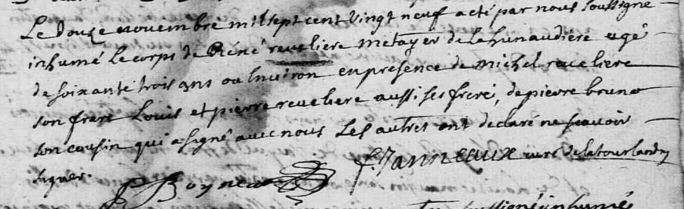 Le Douze novembre mil sept cent vingt neuf a eté par nous soussigné
inhumé le corps de Réné reveliere metayer de la hunaudiere agé
de soixante trois ans ou Environ en presence de michel reveliere
son frere Louis et pierre reveliere aussi ses freré, de pierre bruno
son cousin qui a signé avec nous Les autres ont declaré ne scavoir
signer.
P Boyneau f. Janneaux curé de la tourlandry
soussigné inhumé